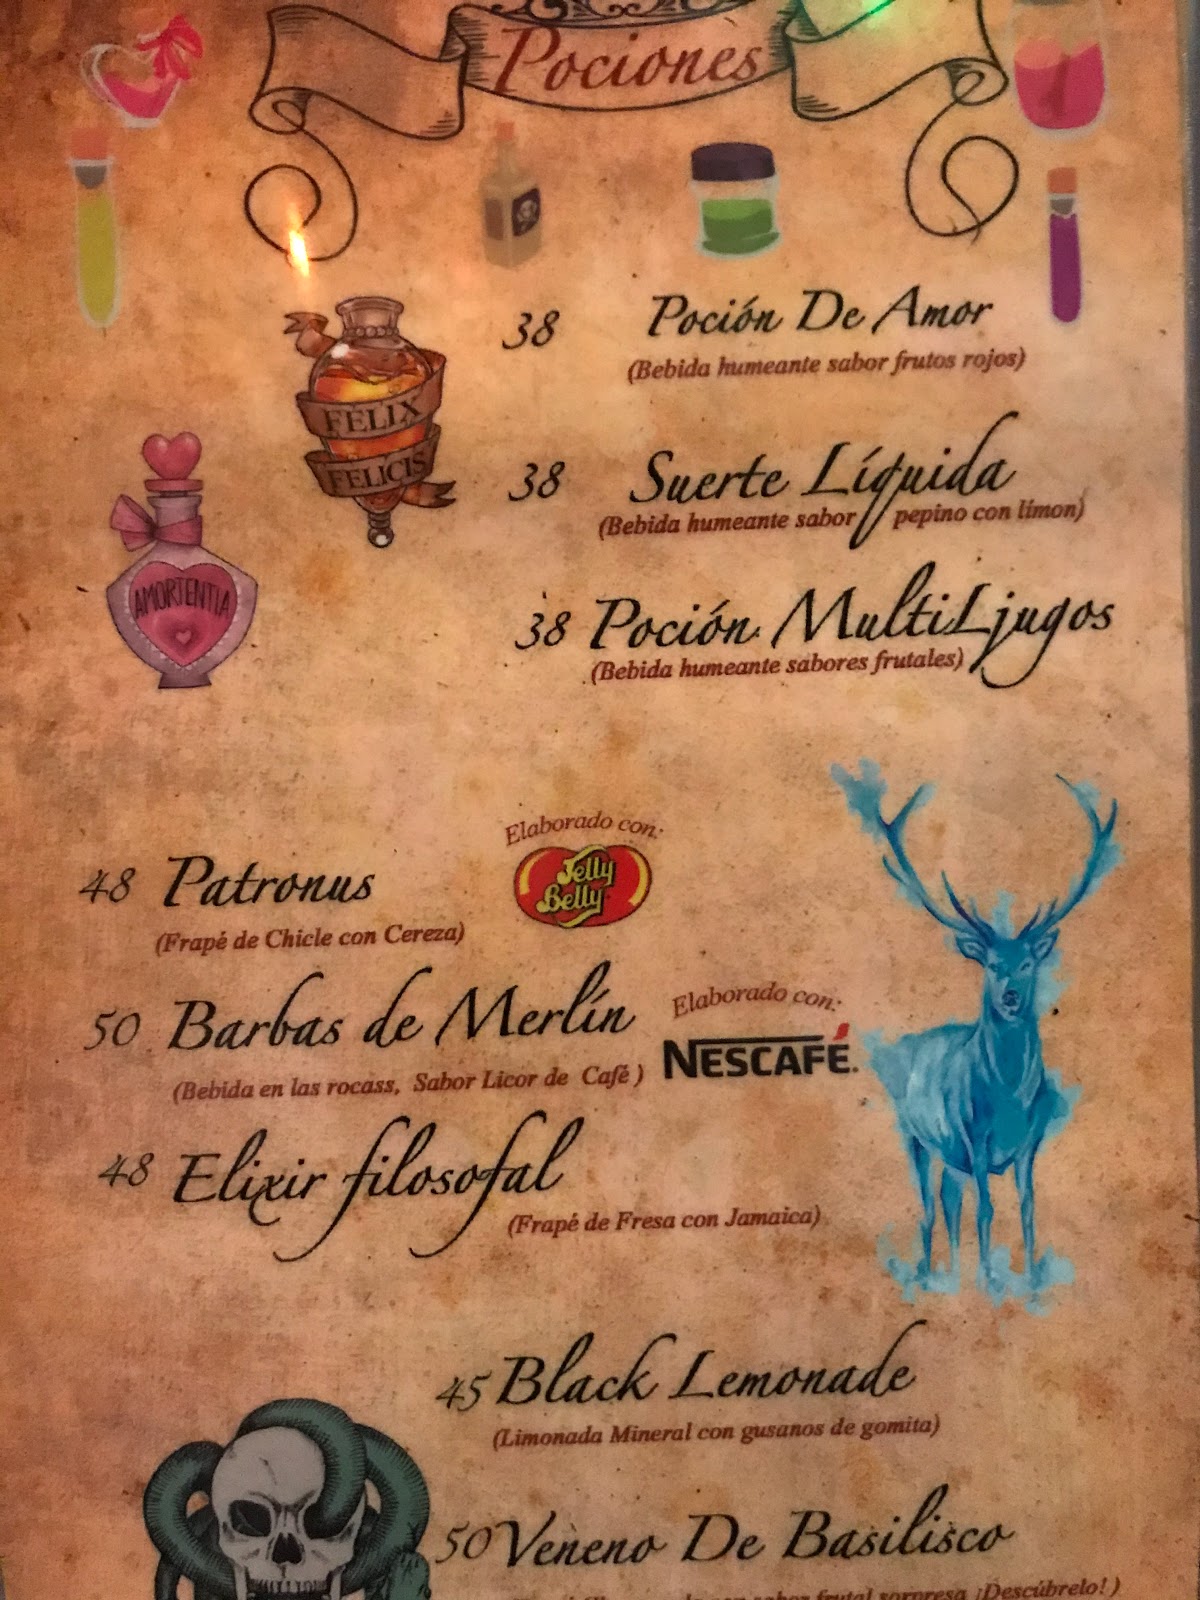 Pociones
38 Poción De Amor
(Bebida humeante sabor frutos rojos)
FELIX
FELICIS
38 Suerte Líquida
(Bebida humeante sabor pepino con límon)
AMORTENTIA
38 Poción MultiLjugos
(Bebida humeante sabores frutales)
Elaborado con:
Jelly
Belly
48 Patronus
(Frapé de Chicle con Cereza)
50 Barbas de Merlín
(Bebida en las rocass, Sabor Licor de Café )
Elaborado con:
NESCAFÉ.
48 Elixir filosofal
(Frapé de Fresa con Jamaica)
45 Black Lemonade
(Limonada Mineral con gusanos de gomita)
50 Veneno De Basilisco
sabor frutal sorpresa ¡Descúbrelo! )